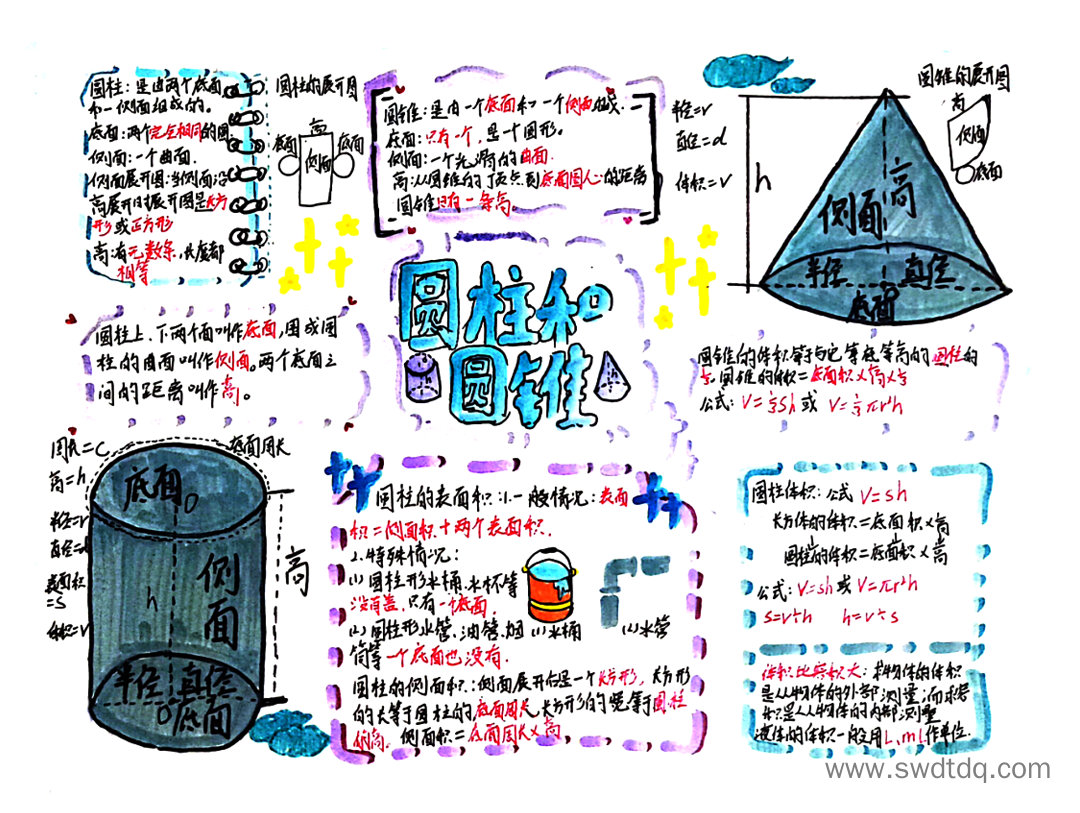 圆柱：是由两个底面
和一侧面组成的。
底面：两个完全相同的圆
侧面：一个曲面.
侧面展开图：当侧面沿
高展开时展开图是长方
形或正方形
高：有无数条，长度都
相等
圆柱的展开图
高
底面
侧面
底面
圆锥：是由一个底面和一个侧面组成.
底面：只有一个，是个圆形。
侧面：一个光滑的曲面.
高：从圆锥的顶点到底面圆心的距离
圆锥只有一条高
半径=r
直径=d
体积=V
h
侧面
高
半径
直径
底面
圆锥的展开图
高
侧面
底面
圆柱上、下两个面叫作底面，围成圆
柱的曲面叫作侧面。两个底面之
间的距离叫作高。
圆柱和
圆锥
h
h
圆锥的体积等于与它等底等高的圆柱的
⅓.圆锥的体积=底面积×高×⅓
公式：V=⅓Sh或 V=⅓πr²h
周长=C
高=h
半径=r
直径=d
表面积
=S
体积=V
底面周长
底面
O
侧面
h
高
半径
直径
O底面
圆柱的表面积：1.一般情况：表面
积=侧面积+两个表面积.
2.特殊情况：
(1)圆柱形水桶.水杯等
没有盖，只有一个底面.
(2)圆柱形水管、油管、烟
筒等一个底面也没有.
(1)水桶
(2)水管
圆柱的侧面积：侧面展开后是一个长方形，长方形
的长等于圆柱的底面周长，长方形的宽等于圆柱
的高. 侧面积=底面周长×高
圆柱体积：公式 V=sh
长方体的体积=底面积×高
圆柱的体积=底面积×高
公式：V=sh或 V=πr²h
s=v÷h h=v÷s
体积比容积大：求物体的体积
是从物体的外部测量；而求容
积是从物体的内部测量
液体的体积一般用L、ml作单位.
www.swdtdq.com